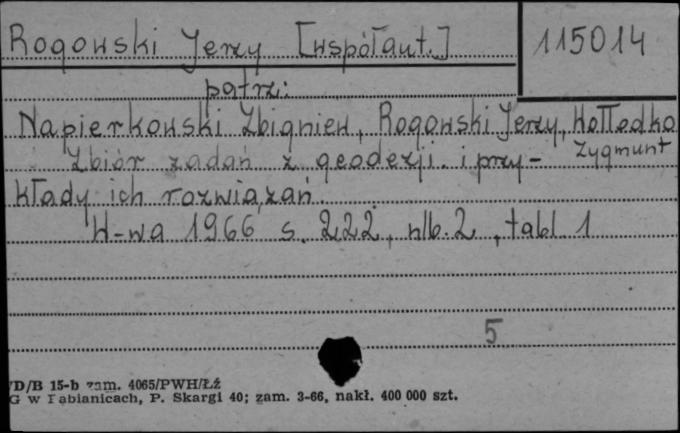 Rogowski Jerzy [współaut.]
115014
patrz:
Napierkowski Zbigniew, Rogowski Jerzy, Wołłodko
Zygmunt
Zbiór zadań z geodezji i przy-
kłady ich rozwiązań.
W-wa 1966 s. 222, nlb. 2, tabl 1
5
D/B 15-b zam. 4065/PWH/Łź
G w Pabianicach, P. Skargi 40; zam. 3-66, nakł. 400 000 szt.